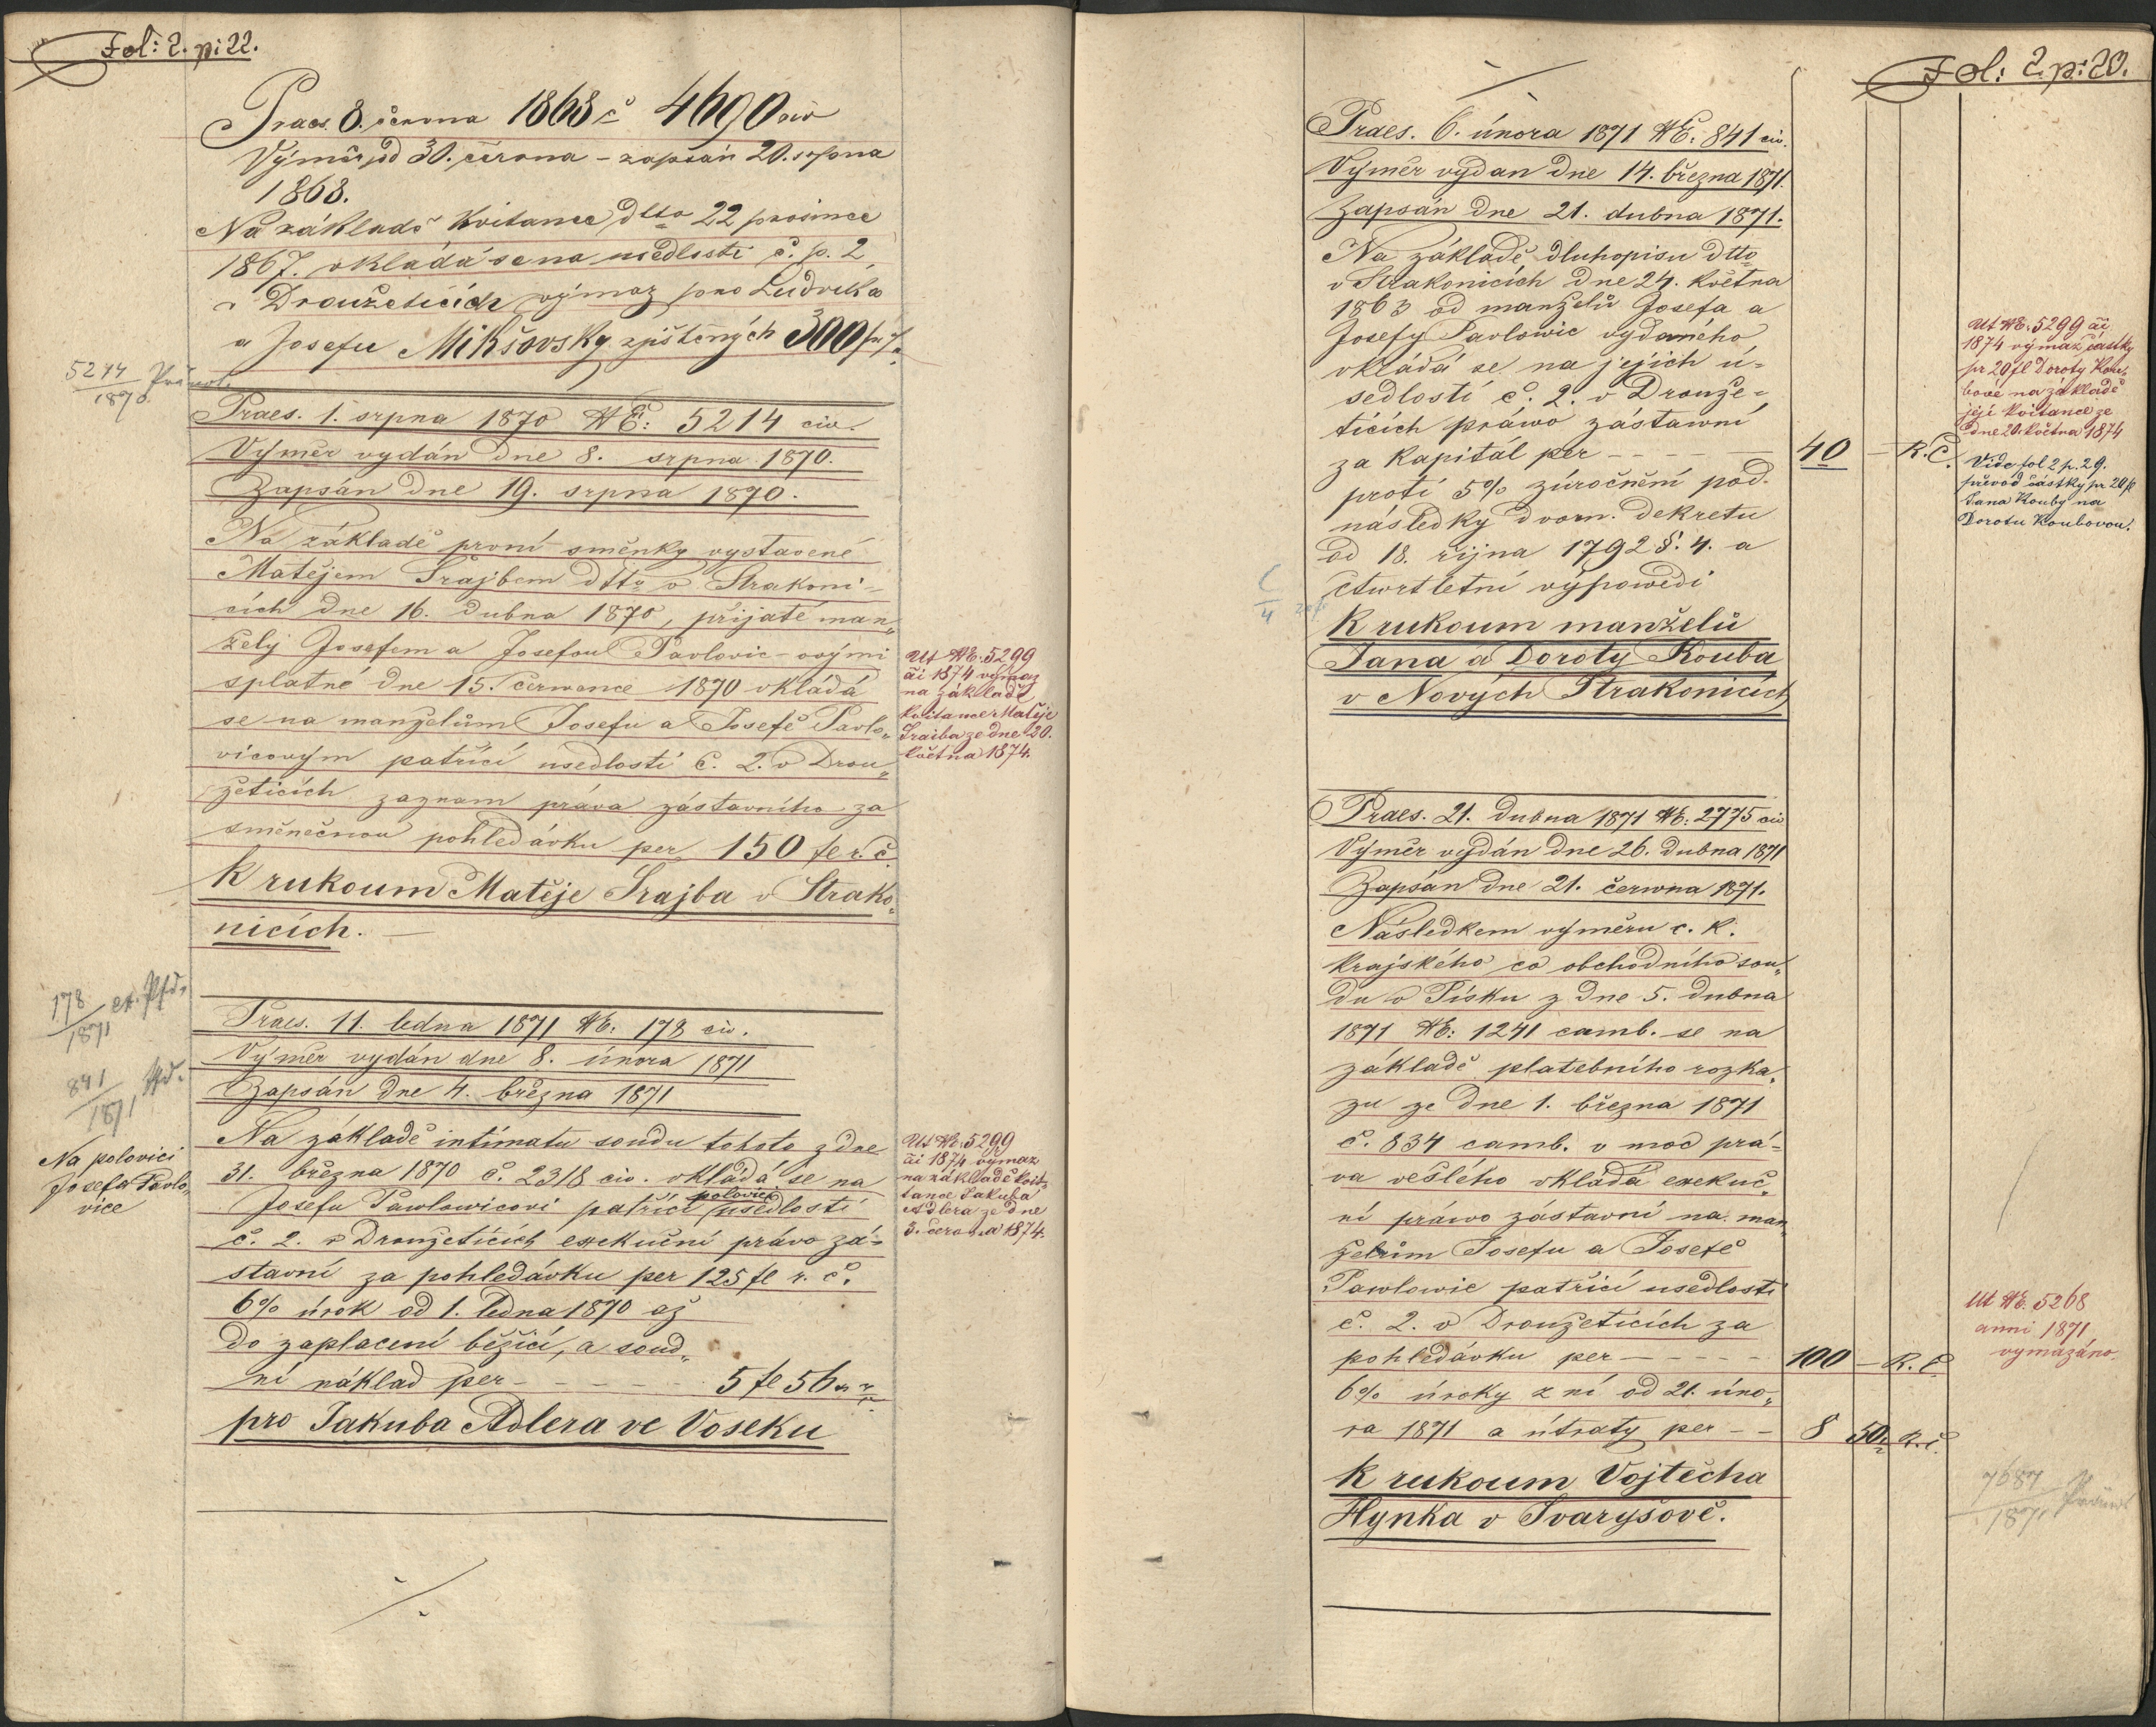 Fol: 2. pi 22.
Praes. 8. června 1868 č 4690 civ
Výměr od 30. června – zapsán 20. srpna
1868.
Na základě Kvitance dtto 22 prosince
1867. vkládá se na usedlosti č. p. 2
v Droužeticích výmaz pro Ludvíka
a Josefu Mikšovsky zjištěných 300
5214
1870
Praes. 1. srpna 1870 NE: 5214 civ.
Výměr vydán dne 8. srpna 1870.
Zapsán dne 19. srpna 1870.
Na základě první směnky vystavené
Matějem Šrajbem dtto v Strakoni-
cích dne 16. dubna 1870, přijaté man„
žely Josefem a Josefou Pavlovic-ovými
splatné dne 15. července 1870 vkládá
se na manželům Josefu a Josefě Pavlo„
vicovým patřící usedlosti č. 2. v Drou„
žeticích zaznam práva zástavního za
směnečnou pohledávku per 150 fl r. č.
K rukoum Matěje Šrajba v Strako„
nicích. —
Ut NE: 5299
ai 1874 výmaz
na základě
kvitance Matěje
Šraiba ze dne 20.
května 1874.
178
1871
841
1871
Praes. 11. ledna 1871 NE: 178 civ.
Výměr vydán dne 8. února 1871
Zapsán dne 4. března 1871
Na základě intimatu soudu tohoto z dne
31. března 1870 č. 2318 civ. vkládá se na
Josefu Pawlowicovi patřící polovici usedlosti
č. 2. v Droužeticích exekuční právo zá-
stavní za pohledávku per 125 fl r. č.
6% úrok od 1. ledna 1870 až
do zaplacení běžící, a soud„
ní náklad per – – – – – 5 fl 56
pro Jakuba Adlera ve Voseku
Na polovici
Josefa Pavlo„
vice
Ut NE: 5299
ai 1874 výmaz
na základě kvit-
tance Jakuba
Adlera ze dne
3. června 1874.
Fol: 2. p: 20.
Praes. 6. února 1871 NE: 841 civ.
Výměr vydan dne 14. března 1871.
Zapsán dne 21. dubna 1871.
Na základě dluhopisu dtto
v Strakonicích dne 24. května
1863 od manželů Josefa a
Josefy Pavlowic vydaného
vkládá se na jejich ú-
sedlosti č. 2. v Drouže-
ticích práwo zástawní
za kapitál per – – – – – 40 – R. Č.
proti 5% zúročnění pod
následky dvorn. dekretu
od 18. října 1792 §. 4. a
čtwrtletní výpowědi
K rukoum manželů
Jana a Doroty Kouba
v Nových Strakonicích
Ut NE: 5299 ai
1874 výmaz částky
pr 20 fl Doroty Kou-
bové na základě
její kvitance ze
dne 20. května 1874
Vide fol 2 p. 29.
převod částky pr 20 fl
Jana Kouby na
Dorotu Koubovou.
Praes. 21. dubna 1871 NE: 2775 civ
Výměr vydán dne 26. dubna 1871
Zapsán dne 21. čerwna 1871.
Následkem výměru c. k.
krajského co obchodního sou„
du v Písku z dne 5. dubna
1871 NE: 1241 camb. se na
základě platebního rozka„
zu ze dne 1. března 1871
č. 834 camb. v moc prá-
va vešlého vkládá exekuč„
ní práwo zástavní na man„
želům Josefu a Josefě
Pawlowic patřící usedlosti
č. 2. v Droužeticích za
pohledávku per – – – – – 100 – R. Č.
6% úroky z ní od 21. úno„
ra 1871 a útraty per – – 8 50 R. Č.
K rukoum Vojtěcha
Hynka v Svaryšově.
Ut NE. 5268
anni 1871
vymazáno
7687
1871